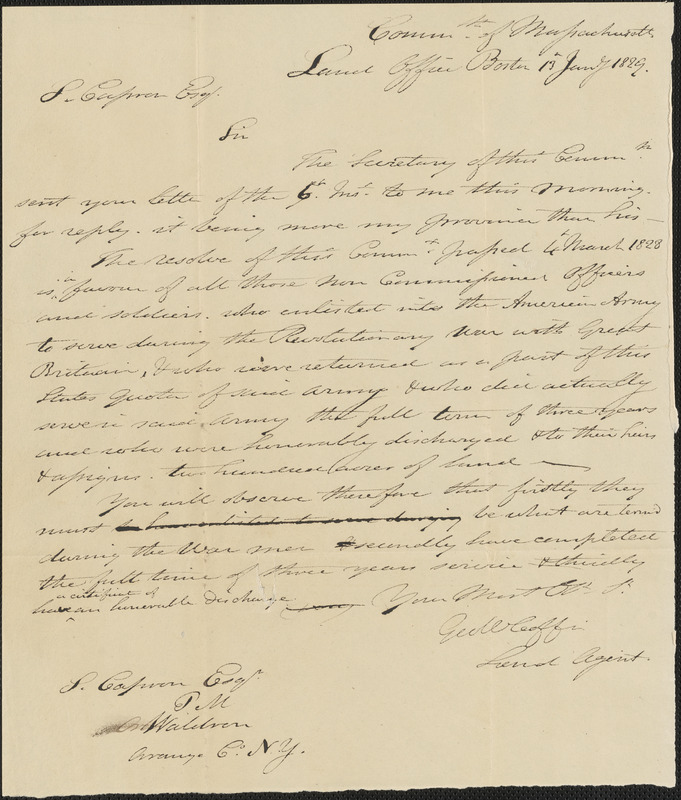 Commth. of Massachusetts
Land Office Boston 13th Jany 1829.
S. Capron Esqr.
Sir
The Secretary of this Commth
sent your letter of the 6th Inst. to me this morning.
for reply. it being more my province than his—
The resolve of this Commth. passed 4th March 1828
is in favour of all those non Commissioned Officers
and soldiers. who enlisted into the American Army
to serve during the Revolutionary War with Great
Britain, & who were returned as a part of this
States Quota of said Army & who did actually
serve in said Army the full term of three years
and who were honorably discharged & to their heirs
& assigns. two hundred acres of land —
You will observe therefore that firstly they
must to have enlisted to serve during be what are termd
during the War men & secondly have completed
the full time of three years service & thirdly
a certificate of
have an honorable discharge Your Most Obt. St.
Geo W Coffin
Land Agent.
S. Capron Esqr.
P M
Waldron
Orange Co. N Y.